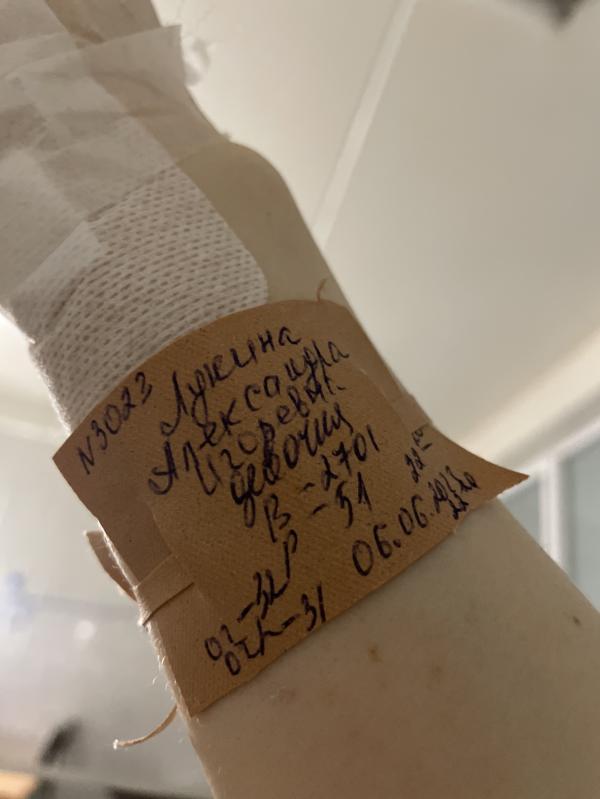 N3023
Лукина
Александра
Игоревн.
девочка
В – 2701
Р – 51
ог – 32
ог – 31
06.06.2022
22⁰⁰